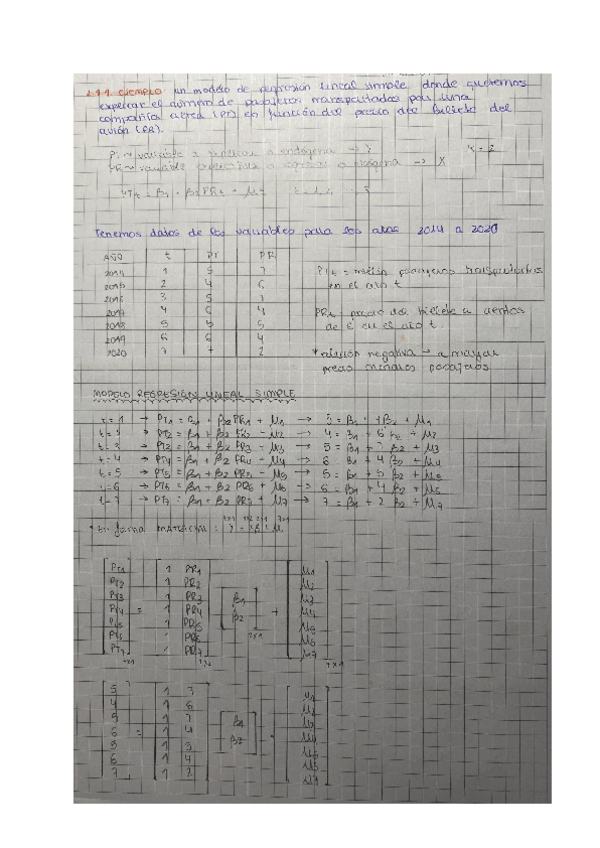 2.1.1. EJEMPLO un modelo de regresión lineal simple, donde queremos
explicar el número de pasajeros transportados por una
compañía aérea (PT) en función del precio del billete del
avión (PR).
variable a explicar o endógena → Y
variable explicativa o exógena → X
Tenemos datos de las variables para los años 2014 a 2020
AÑO t PT PR
2014 1 5 7
2015 2 4 6
2016 3 5
2017 4 6 4
2018 5 5
2019 6 6 4
2020 7 7 2
PTt = pasajeros transportados
en el año t
PRt = precio del billete a cientos
de € en el año t
*relación negativa → a mayor
precio menores pasajeros
MODELO REGRESIÓN LINEAL SIMPLE
t=1 → PT1 = β1 + β2 PR1 + μ1 → 5 = β1 + 7β2 + μ1
t=2 → PT2 = β1 + β2 PR2 + μ2 → 4 = β1 + 6 β2 + μ2
t=3 → PT3 = β1 + β2 PR3 + μ3 → 5 = β1 + 7 β2 + μ3
t=4 → PT4 = β1 + β2 PR4 + μ4 → 6 = β1 + 4 β2 + μ4
t=5 → PT5 = β1 + β2 PR5 + μ5 → 5 = β1 + 5 β2 + μ5
t=6 → PT6 = β1 + β2 PR6 + μ6 → 6 = β1 + 4 β2 + μ6
t=7 → PT7 = β1 + β2 PR7 + μ7 → 7 = β1 + 2 β2 + μ7
* En forma MATRICIAL: Y = Xβ + μ
PT1 1 PR1 μ1
PT2 1 PR2 μ2
PT3 1 PR3 β1 μ3
PT4 = 1 PR4 β2 + μ4
PT5 1 PR5 μ5
PT6 1 PR6 μ6
PT7 1 PR7 μ7
5 1 7 μ1
4 1 6 μ2
5 1 7 β1 μ3
6 = 1 4 β2 + μ4
5 1 5 μ5
6 1 4 μ6
7 1 2 μ7